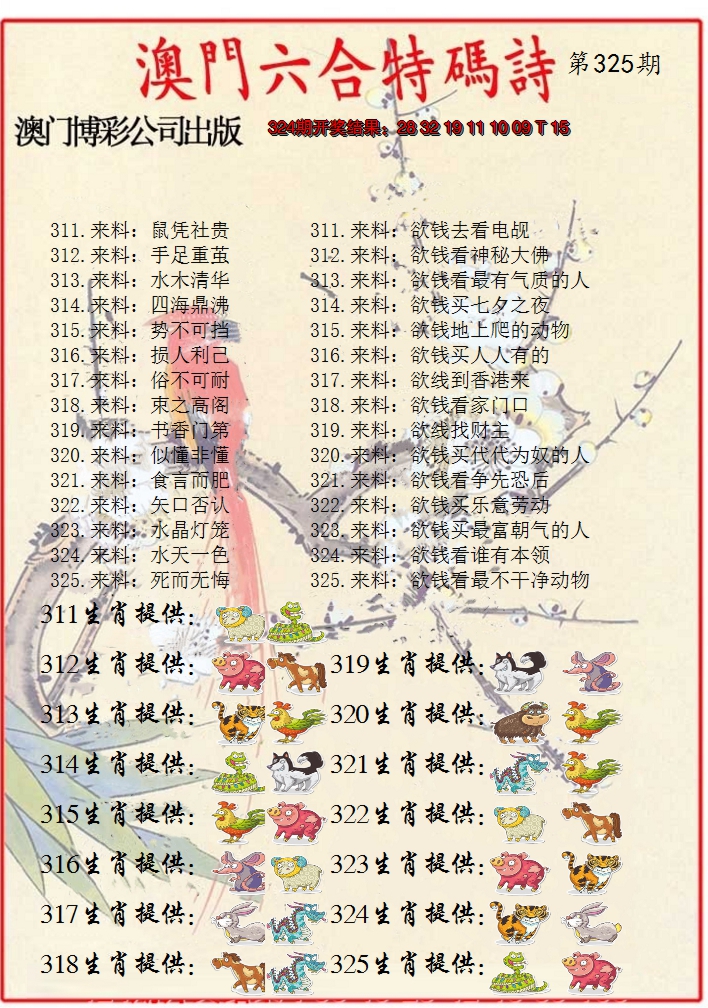 澳門六合特碼詩 第325期
澳门博彩公司出版 324期开奖结果：28 32 19 11 10 09 T 15
311.来料：鼠凭社贵 311.来料：欲钱去看电觇
312.来料：手足重茧 312.来料：欲钱看神秘大佛
313.来料：水木清华 313.来料：欲钱看最有气质的人
314.来料：四海鼎沸 314.来料：欲钱买七夕之夜
315.来料：势不可挡 315.来料：欲钱地上爬的动物
316.来料：损人利己 316.来料：欲钱买人人有的
317.来料：俗不可耐 317.来料：欲线到香港来
318.来料：束之高阁 318.来料：欲钱看家门口
319.来料：书香门第 319.来料：欲线找财主
320.来料：似懂非懂 320.来料：欲钱买代代为奴的人
321.来料：食言而肥 321.来料：欲钱看争先恐后
322.来料：矢口否认 322.来料：欲钱买乐意劳动
323.来料：水晶灯笼 323.来料：欲钱买最富朝气的人
324.来料：水天一色 324.来料：欲钱看谁有本领
325.来料：死而无悔 325.来料：欲钱看最不干净动物
311生肖提供：
312生肖提供： 319生肖提供：
313生肖提供： 320生肖提供：
314生肖提供： 321生肖提供：
315生肖提供： 322生肖提供：
316生肖提供： 323生肖提供：
317生肖提供： 324生肖提供：
318生肖提供： 325生肖提供：